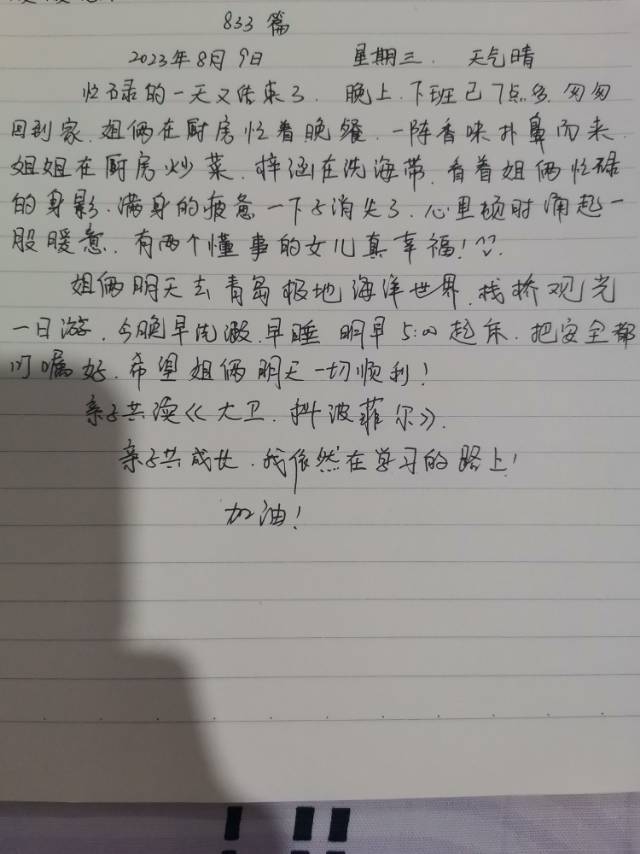 833 篇
2023年8月9日 星期三. 天气晴
忙碌的一天又结束了. 晚上.下班已7点多.匆匆
回到家.姐俩在厨房忙着晚餐.一阵香味扑鼻而来.
姐姐在厨房炒菜.梓涵在洗海带.看着姐俩忙碌
的身影.满身的疲惫一下子消失了.心里顿时涌起一
股暖意.有两个懂事的女儿真幸福!
姐俩明天去青岛极地海洋世界.栈桥观光
一日游.今晚早洗漱.早睡 明早5:00起床.把安全都
叮嘱好.希望姐俩明天一切顺利!
亲子共读《大卫.科波菲尔》.
亲子共成长.我依然在学习的路上!
加油!